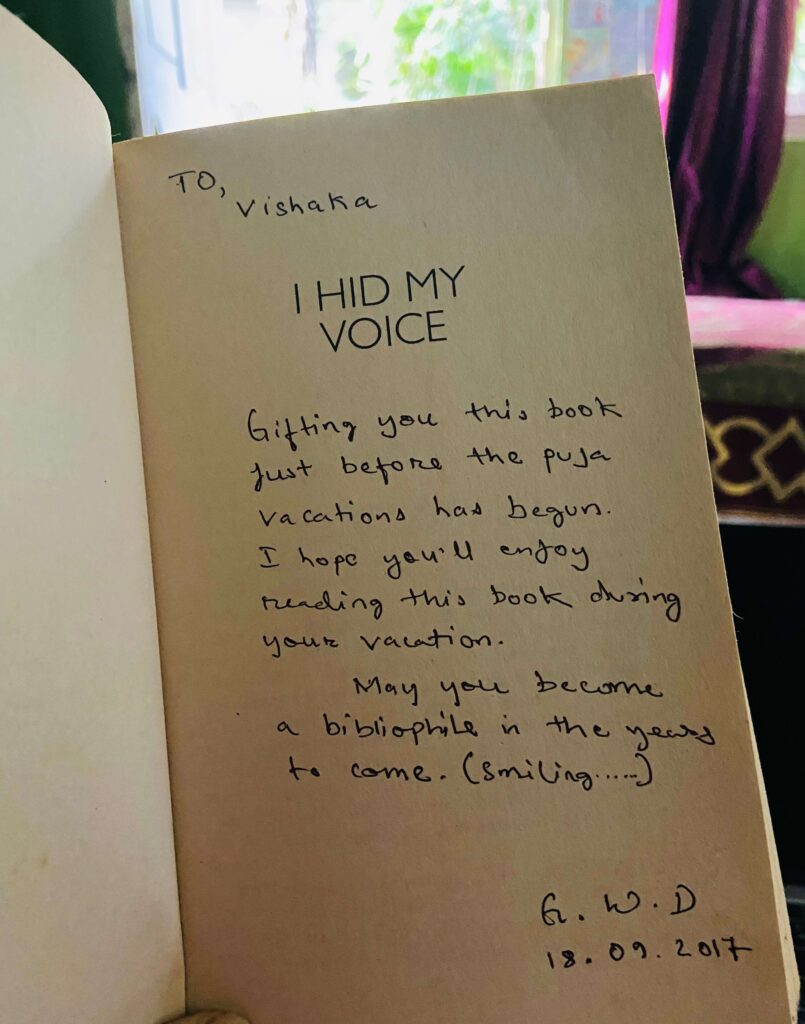 TO,
Vishaka
I HID MY
VOICE
Gifting you this book
just before the puja
vacations has begun.
I hope you'll enjoy
reading this book during
your vacation.
May you become
a bibliophile in the years
to come. (Smiling.....)
G. W. D
18. 09. 2017